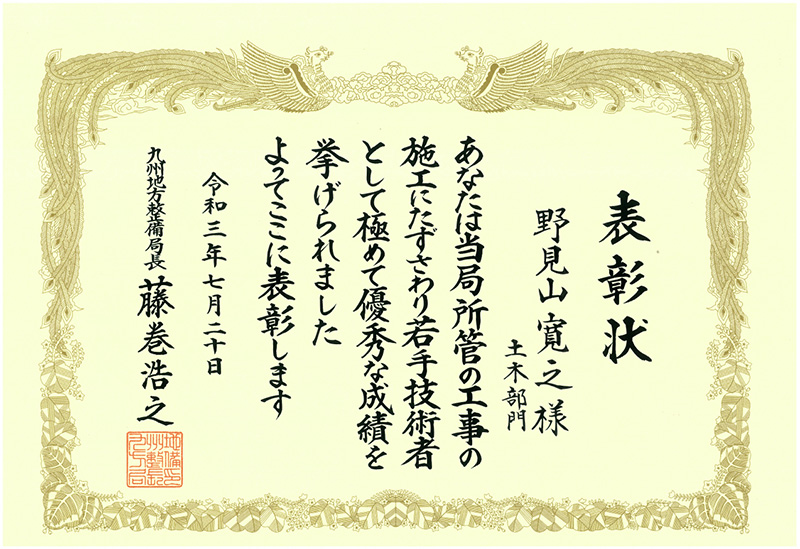 表彰状
野見山寛之様
土木部門
あなたは当局所管の工事の
施工にたずさわり若手技術者
として極めて優秀な成績を
挙げられました
よってここに表彰します
令和三年七月二十日
九州地方整備局長 藤巻浩之